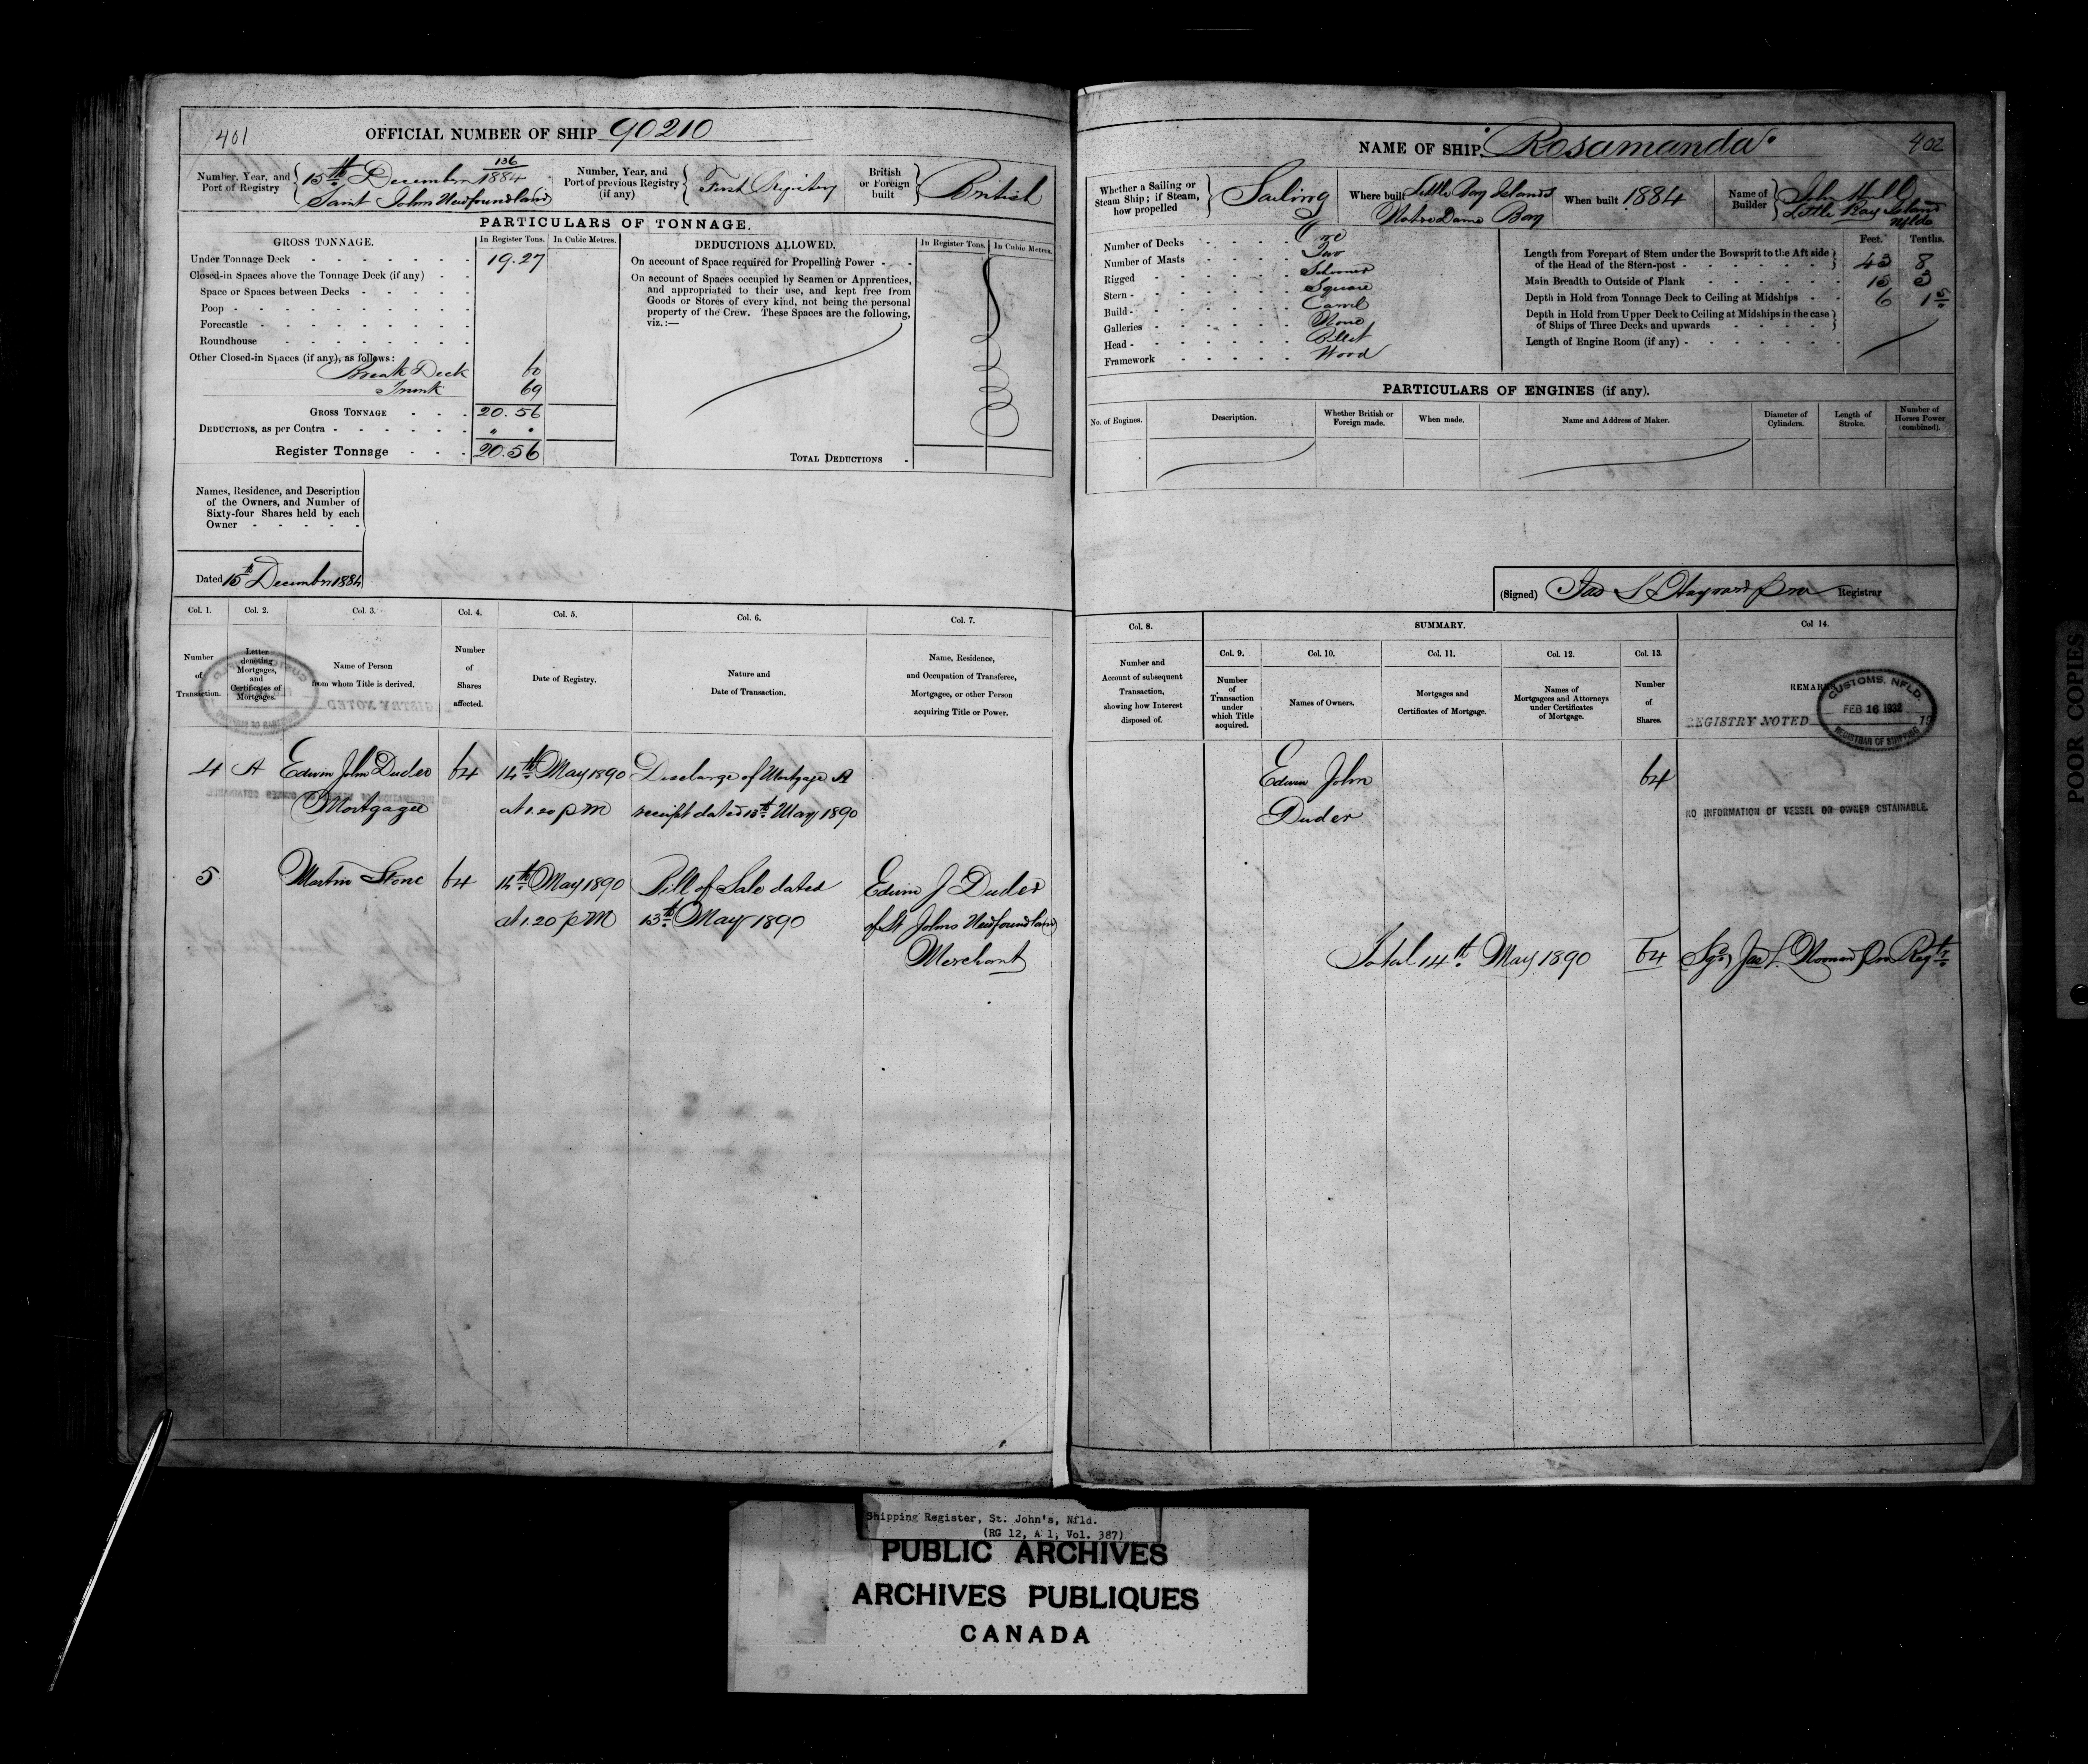 401
OFFICIAL NUMBER OF SHIP 90210
Number, Year, and Port of Registry
136
15th December 1884
Saint Johns Newfoundland
Number, Year, and Port of previous Registry (if any)
First Registry
British or Foreign built
British
PARTICULARS OF TONNAGE.
GROSS TONNAGE.
In Register Tons.
In Cubic Metres.
Under Tonnage Deck 19.27
Closed-in Spaces above the Tonnage Deck (if any)
Space or Spaces between Decks
Poop
Forecastle
Roundhouse
Other Closed-in Spaces (if any), as follows:
Break Deck 60
Trunk 69
GROSS TONNAGE 20.56
DEDUCTIONS, as per Contra
Register Tonnage 20.56
DEDUCTIONS ALLOWED.
In Register Tons.
In Cubic Metres.
On account of Space required for Propelling Power
On account of Spaces occupied by Seamen or Apprentices,
and appropriated to their use, and kept free from
Goods or Stores of every kind, not being the personal
property of the Crew. These Spaces are the following,
viz.:—
TOTAL DEDUCTIONS
Names, Residence, and Description
of the Owners, and Number of
Sixty-four Shares held by each
Owner
Dated 15th December 1884
Col. 1.
Col. 2.
Col. 3.
Col. 4.
Col. 5.
Col. 6.
Col. 7.
Number of Transaction.
Letter denoting Mortgages, and Certificates of Mortgages.
Name of Person from whom Title is derived.
Number of Shares affected.
Date of Registry.
Nature and Date of Transaction.
Name, Residence, and Occupation of Transferee, Mortgagee, or other Person acquiring Title or Power.
4 A Edwin John Duder 64 14th May 1890 Discharge of Mortgage A
Mortgagee at 1.20 p M receipt dated 13th May 1890
5 Martin Stone 64 14th May 1890 Bill of Sale dated Edwin J Duder
at 1.20 p M 13th May 1890 of St Johns Newfoundland
Merchant
NAME OF SHIP. Rosamanda
402
Whether a Sailing or Steam Ship; if Steam, how propelled
Sailing
Where built
Little Bay Islands
Notre Dame Bay
When built 1884
Name of Builder
John
Little Bay Island
Nfld
Number of Decks One
Number of Masts Two
Rigged Schooner
Stern Square
Build Carvel
Galleries None
Head Billet
Framework Wood
Feet. Tenths.
Length from Forepart of Stem under the Bowsprit to the Aft side
of the Head of the Stern-post 43 8
Main Breadth to Outside of Plank 15 3
Depth in Hold from Tonnage Deck to Ceiling at Midships 6 15
Depth in Hold from Upper Deck to Ceiling at Midships in the case
of Ships of Three Decks and upwards
Length of Engine Room (if any)
PARTICULARS OF ENGINES (if any).
No. of Engines.
Description.
Whether British or Foreign made.
When made.
Name and Address of Maker.
Diameter of Cylinders.
Length of Stroke.
Number of Horses Power (combined).
(Signed)
Registrar
Col. 8.
SUMMARY.
Col 14.
Col. 9.
Col. 10.
Col. 11.
Col. 12.
Col. 13.
Number and Account of subsequent Transaction, showing how Interest disposed of.
Number of Transaction under which Title acquired.
Names of Owners.
Mortgages and Certificates of Mortgage.
Names of Mortgagees and Attorneys under Certificates of Mortgage.
Number of Shares.
REMARKS
REGISTRY NOTED 19
CUSTOMS, NFLD.
FEB 16 1932
REGISTRAR OF SHIPPING
Edwin John 64
Duder
NO INFORMATION OF VESSEL OR OWNER OBTAINABLE.
Total 14th May 1890 64
POOR COPIES
Shipping Register, St. John's, Nfld.
(RG 12, A 1, Vol. 387)
PUBLIC ARCHIVES
ARCHIVES PUBLIQUES
CANADA